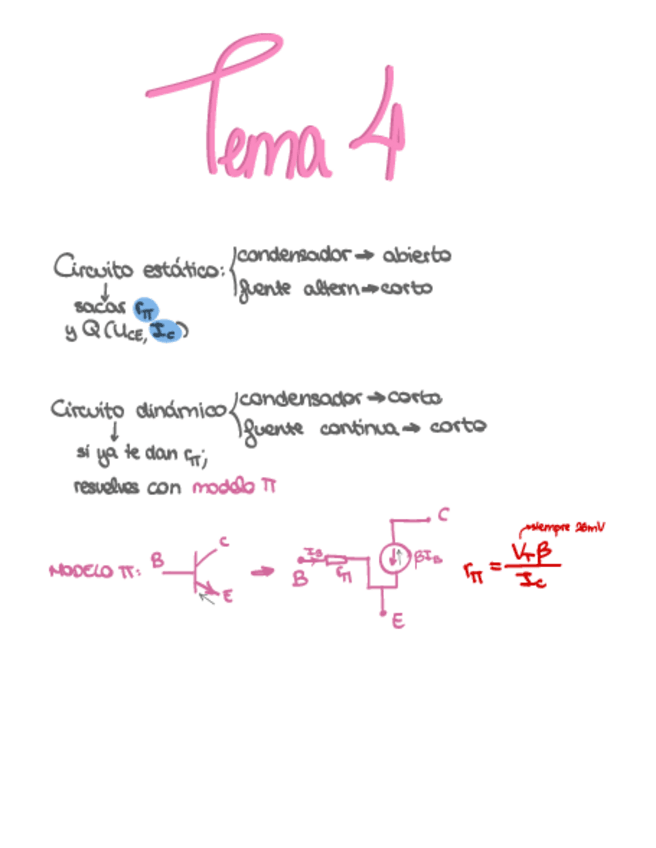 Tema 4
Circuito estático: condensador → abierto
fuente altern → corto
↓
sacar rπ
y Q (UCE, Ic)
Circuito dinámico condensador → corto
fuente continua → corto
↓
si ya te dan rπ;
resuelves con modelo π
MODELO π: B C E → B IB rπ C βIB E
rπ = VT β / Ic
→ siempre 26mV